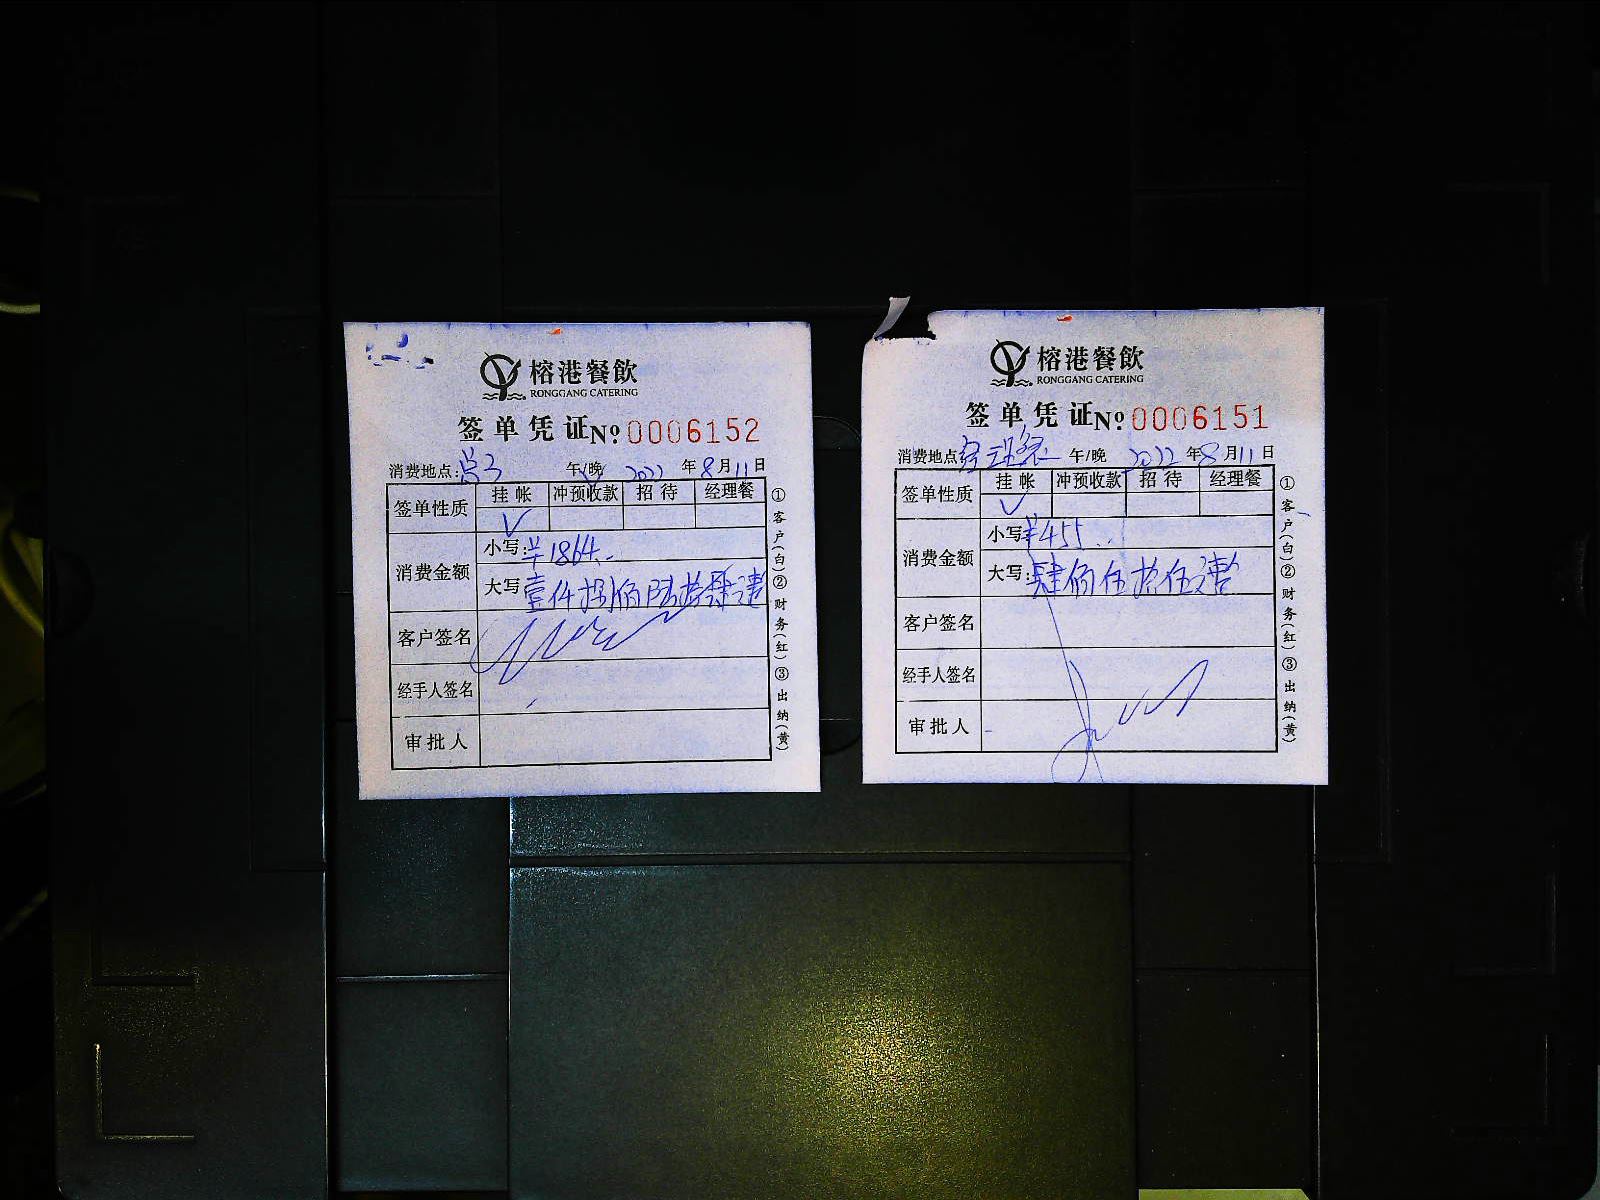 榕港餐飲
RONGGANG CATERING
签单凭证 No 0006152
消费地点: 午/晚 2022 年 8 月 11 日
签单性质 挂帐 冲预收款 招待 经理餐
✓
消费金额
小写: ¥1864.
大写: 壹仟捌佰陆拾肆元整
客户签名
经手人签名
审批人
①客户(白)②财务(红)③出纳(黄)
榕港餐飲
RONGGANG CATERING
签单凭证 No 0006151
消费地点 午/晚 2022 年 8 月 11 日
签单性质 挂帐 冲预收款 招待 经理餐
✓
消费金额
小写 ¥455.
大写: 肆佰伍拾伍元整
客户签名
经手人签名
审批人
①客户(白)②财务(红)③出纳(黄)